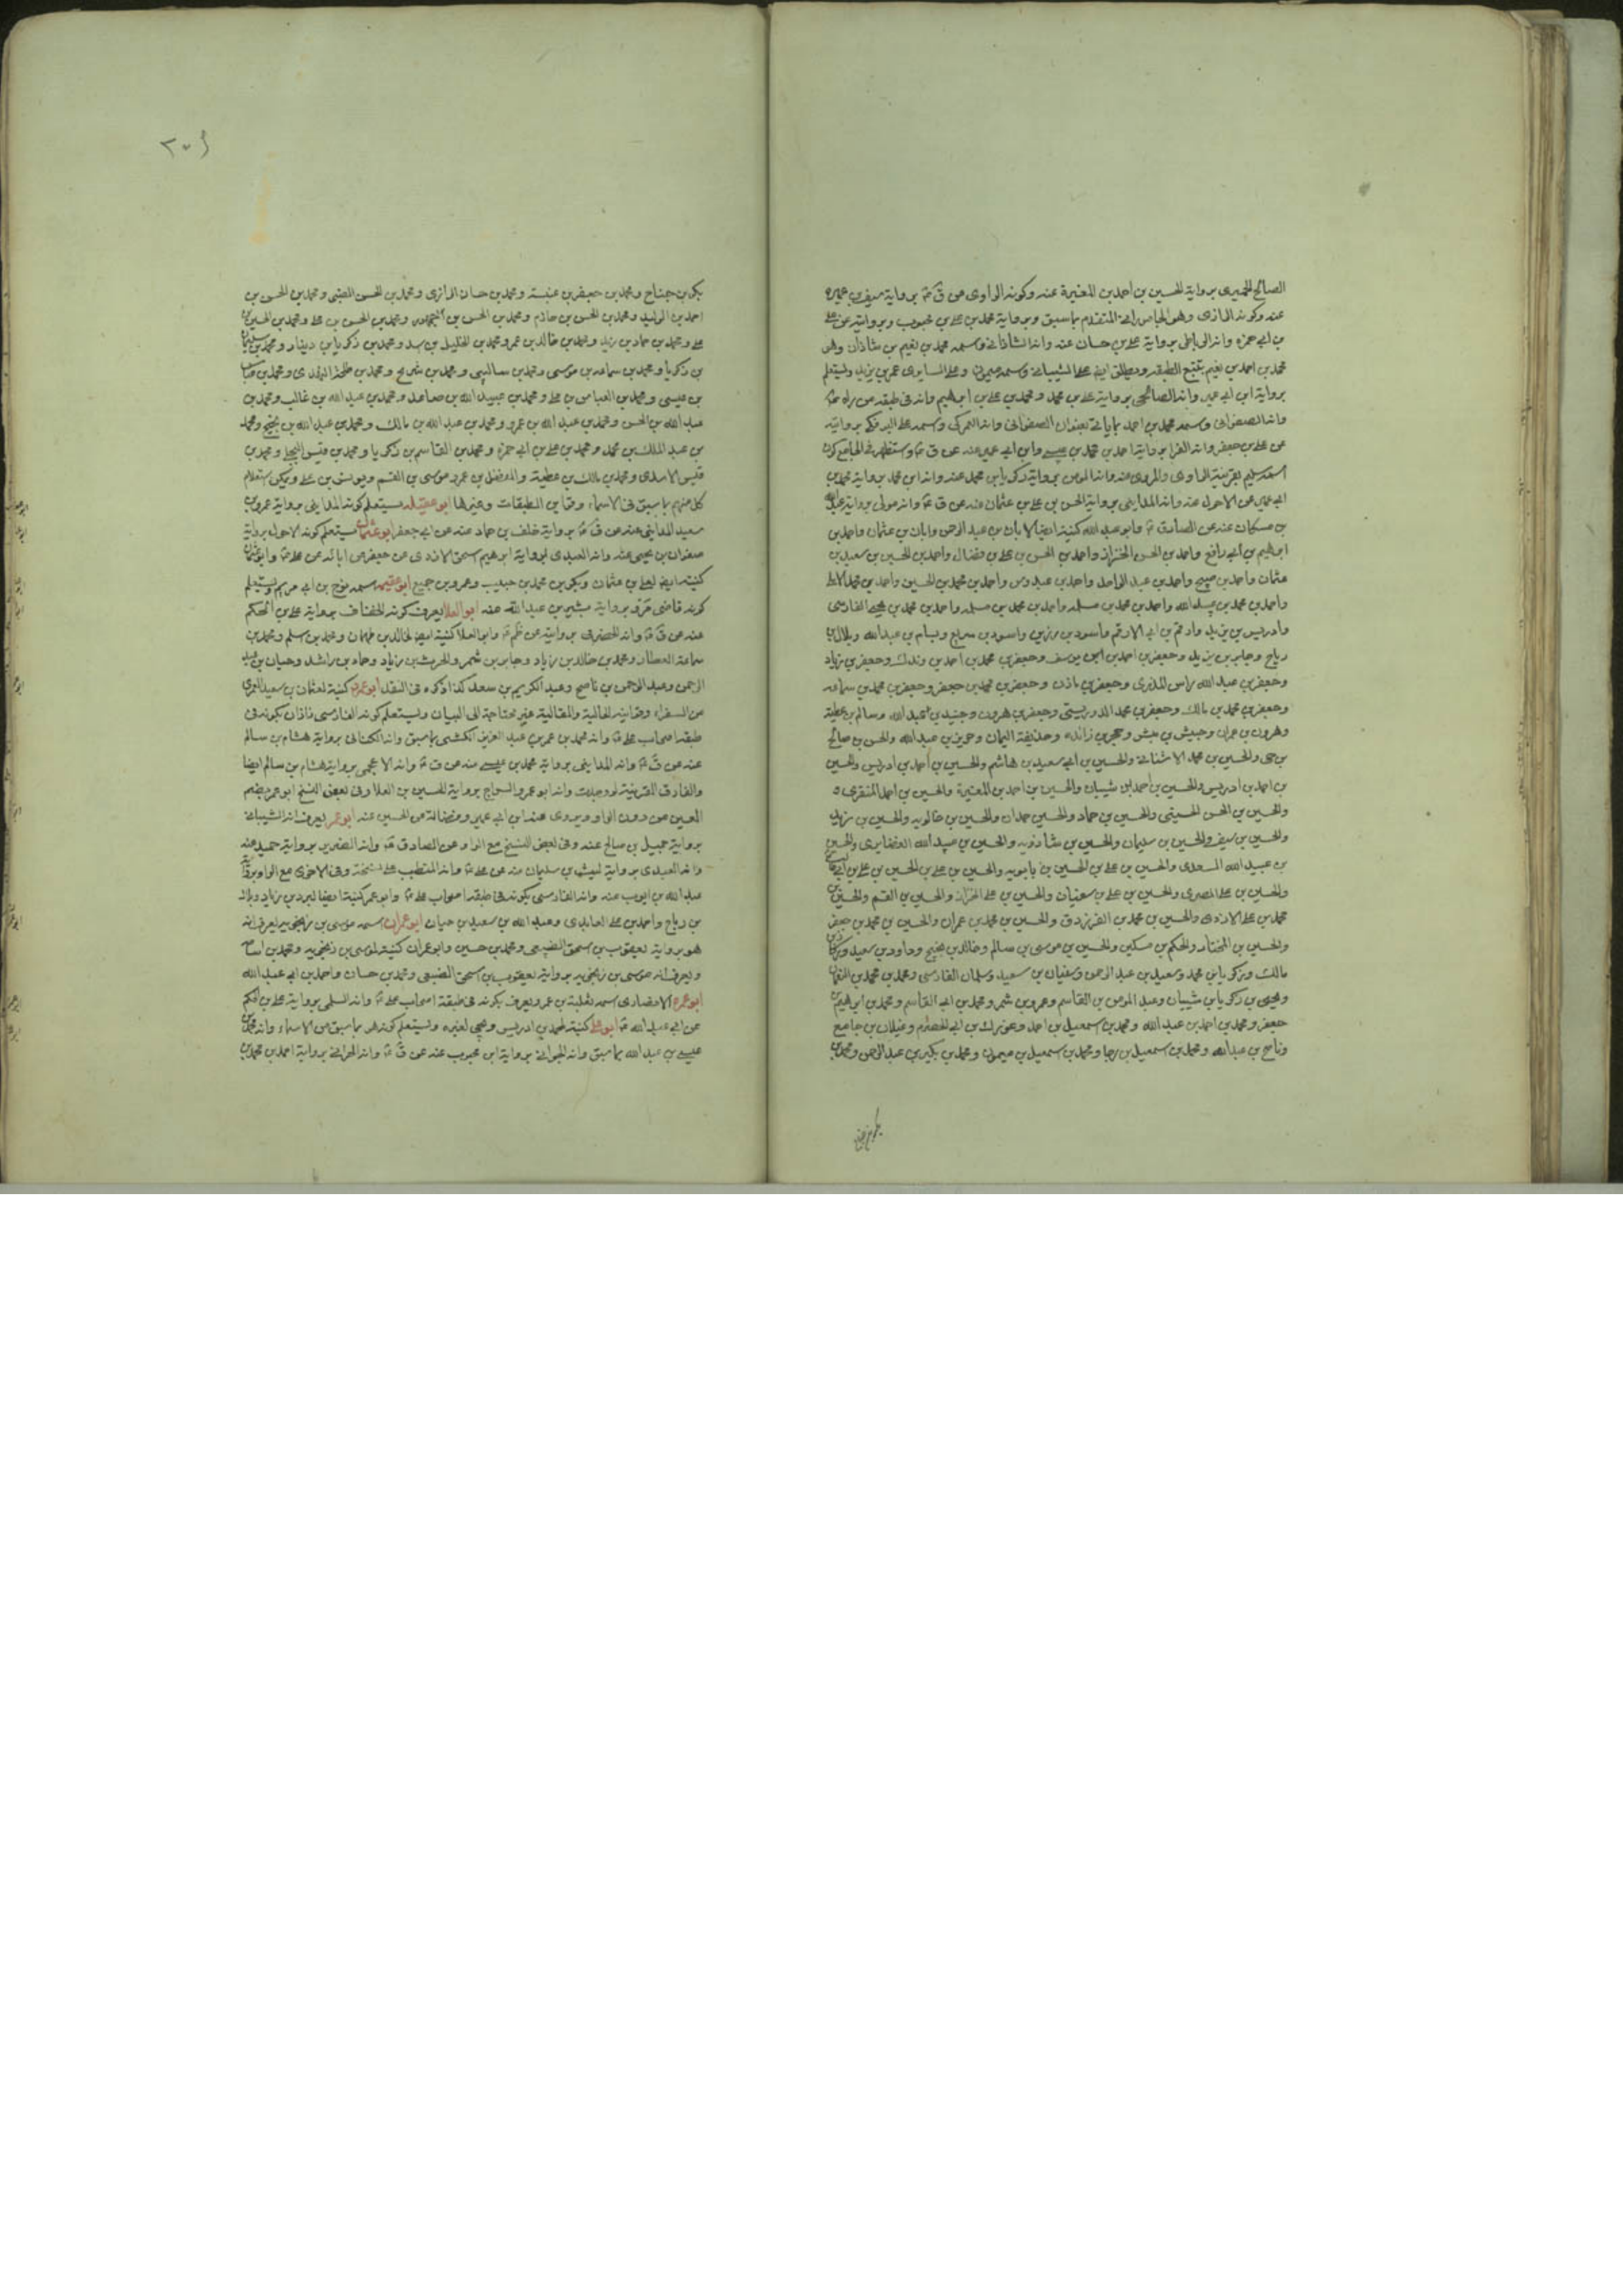 الصالح الحميرى برواية الحسين بن احمد بن المغيرة عنه وكونه الراوى عن ق ع برواية سيف بن عميرة
عنه وكونه الرازى وهو الجاموراني المتقدم بما سبق وبرواية محمد بن على بن محبوب وبروايته عن على
بن ابى حمزه وانه برواية على بن حسان عنه وانه الشاذانى وسمه محمد بن نعيم بن شاذان وهو
محمد بن احمد بن نعيم بتتبع الطبقه ويطلق ايضا على الشيبانى وسمه ميمون وعلى السابرى عمر بن يزيد وليستعلم
برواية ابن ابى عمير وانه برواية على بن محمد ومحمد بن على بن ابراهيم وانه فى طبقه من
وانه الصفوانى وسمه محمد بن احمد بعنوان الصفوانى وانه العمركى وسمه على البوفكى بروايته
عن على بن جعفر وانه الفرا برواية احمد بن محمد بن عيسى وابن ابى عمير عنه عن ق ع
بقرينة الراوى والمروى عنه وانه المومن برواية زكريا بن محمد عنه وانه ابن محمد برواية محمد بن
ابى عمير عن الاحول عنه وانه المداينى برواية الحسن بن على بن عثمان عنه عن ق ع وانه مولى برواية عبدالله
بن مسكان عنه عن الصادق ع وابو عبد الله كنية ايضا لابان بن عبد الرحمن وابان بن عثمان واحمد بن
ابراهيم بن ابى رافع واحمد بن الحسن الخزاز واحمد بن الحسن بن على بن فضال واحمد بن الحسين بن سعيد بن
عثمان واحمد بن صبيح واحمد بن عبد الواحد واحمد بن عبدوس واحمد بن محمد بن الحسين واحمد بن محمد
واحمد بن محمد بن عبيد الله واحمد بن محمد بن مسلمه واحمد بن محمد بن مسلمه واحمد بن محمد بن يحيى الفارسى
وادريس بن يزيد وارقم بن ابى الارقم واسود بن رزين واسود بن سريع وبسام بن عبد الله وبلال بن
رباح وجابر بن يزيد وجعفر بن احمد بن يوسف وجعفر بن محمد بن احمد بن وندك وجعفر بن زياد
وجعفر بن عبد الله راس المذرى وجعفر بن مازن وجعفر بن محمد بن جعفر وجعفر بن محمد بن سماعه
وجعفر بن محمد بن مالك وجعفر بن محمد الدوريستى وجعفر بن هرون وجنيد بن عبد الله وسالم بن عطية
وهرون بن عمران وحبيش بن مبشر وحجر بن زائده وحذيفة اليمان وحريز بن عبد الله والحسن بن صالح
بن حى والحسين بن محمد الاشنانى والحسين بن ابى سعيد بن هاشم والحسين بن احمد بن ادريس والحسين
بن احمد بن ادريس والحسين بن احمد بن شيبان والحسين بن احمد بن المغيرة والحسين بن احمد المنقرى
والحسين بن الحسن الحسينى والحسين بن حماد والحسين حمدان والحسين بن خالويه والحسين بن زيد
والحسين بن سيف والحسين بن سليمان والحسين بن شاذويه والحسين بن عبيد الله الغضايرى والحسين
بن عبيد الله السعدى والحسين بن على بن الحسين بن بابويه والحسين بن على بن الحسين بن على بن ابى طالب
والحسين بن على المصرى والحسين بن على بن سفيان والحسين بن على الخزاز والحسين بن القسم والحسين بن
محمد بن على الازدى والحسين بن محمد بن الفرزدق والحسين بن محمد بن عمران والحسين بن محمد بن جعفر
والحسين بن المختار والحكم بن مسكين والحسين بن موسى بن سالم وخالد بن نجيح وداود بن سعيد
مالك وزكريا بن محمد وسعيد بن عبد الرحمن وسفيان بن سعيد وسلمان الفارسى ومحمد بن محمد بن النعمان
ويحيى بن زكريا بن شيبان وعبد المومن بن القاسم وعمرو بن شمر ومحمد بن ابى القاسم ومحمد بن ابراهيم بن
جعفر ومحمد بن احمد بن عبد الله ومحمد بن اسمعيل بن احمد وغيلان بن جامع
وناصح بن عبد الله ومحمد بن اسمعيل بن رجا ومحمد بن اسمعيل بن ميمون ومحمد بن بكير بن عبد الرحمن ومحمد بن
بكر بن جناح
٢٠٤
بكر بن جناح ومحمد بن جعفر بن عنبسة ومحمد بن حسان الرازى ومحمد بن الحسن الضبى ومحمد بن الحسن بن
احمد بن الوليد ومحمد بن الحسن بن حازم ومحمد بن الحسن بن الجمهور ومحمد بن الحسن بن على ومحمد بن الحسين بن
على ومحمد بن حماد بن زيد ومحمد بن خالد بن عمر ومحمد بن الخليل بن اسد ومحمد بن زكريا بن دينار ومحمد بن سليمان
بن زكريا ومحمد بن سماعه بن موسى ومحمد بن سالم ومحمد بن شريح ومحمد بن طلحة النهدى ومحمد بن
بن عيسى ومحمد بن العباس بن على ومحمد بن عبيد الله بن صاعد ومحمد بن عبد الله بن غالب ومحمد بن
عبد الله بن الحسن ومحمد بن عبد الله بن عمرو ومحمد بن عبد الله بن مالك ومحمد بن عبد الله بن نجيح ومحمد
بن عبد الملك بن محمد ومحمد بن على بن ابى حمزه ومحمد بن القاسم بن زكريا ومحمد بن قيس البجلى ومحمد بن
قيس الاسدى ومحمد بن مالك بن عطية والمفضل بن عمرو وموسى بن القسم ويونس بن على ويمكن استعلام
كل منهم بما سبق فى الاسماء وقراين الطبقات وغيرها ابو عقيله يستعلم كونه المداينى برواية عمرو بن
سعيد المداينى عنه عن ق ع برواية خلف بن حماد عنه عن ابى جعفر ابو عثمان يستعلم كونه الاحول برواية
صفوان بن يحيى عنه وانه العبدى برواية ابرهيم اسحق الازدى عن جعفر عن ابائه عن على ع وابو عثمان
كنيته ايضا لعلى بن عثمان وبكر بن محمد بن حبيب وعمرو بن جميع ابو عصمه اسمه نوح بن ابى مريم ليستعلم
كونه قاضى مرو برواية بشير بن عبد الله عنه ابو العلا ليعرف كونه الخفاف برواية على بن الحكم
عنه عن ق ع وانه الحضرمى بروايته عن ظم ع وابو العلا كنية ايضا لخالد بن طهمان ومحمد بن سلم ومحمد بن
سماعة العطار ومحمد بن خالد بن زياد وجابر بن شمر والحرث بن زياد وحماد بن راشد وحيان بن عبد
الرحمن وعبد الرحمن بن ناصح وعبد الكريم بن سعد كذا ذكره فى النقد ابو عمرو كنية لعثمان بن سعيد العمرى
من السفراء وقراينه الحالية والمقالية غير محتاجة الى البيان وليستعلم كونه الفارسى زاذان بكونه فى
طبقه اصحاب على ع وانه محمد بن عمر بن عبد العزيز الكشى بما سبق وانه الكنانى برواية هشام بن سالم
عنه عن ق ع وانه المداينى برواية محمد بن عيسى عنه عن ق ع وانه الاعجمى برواية هشام بن سالم ايضا
والفارق القرينة لو وجدت وانه ابو عمرو السراج برواية الحسين بن العلا وفى بعض النسخ ابو عمر بضم
العين من دون الواو ويروى عنه ابن ابى عمير وفضالة عن الحسين عنه ابو عمر ليعرف انه الشيبانى
برواية جميل بن صالح عنه وفى بعض النسخ مع الواو عن الصادق ع وانه الضرير برواية حميد عنه
وانه العبدى برواية ليث بن سليمان عنه عن على ع وانه المتطبب على نسخة وفى الاخرى مع الواو برواية
عبد الله بن ايوب عنه وانه الفارسى بكونه فى طبقه اصحاب على ع وابو عمر كنية ايضا لبرد بن زياد وبلال
بن رياح واحمد بن على العابدى وعبد الله بن سعيد بن حيان ابو عمران اسمه موسى بن زنجويه ليعرف انه
هو برواية يعقوب بن اسحق الضبيى ومحمد بن حسين وابو عمران كنية لموسى بن زنجويه ومحمد بن اسام
وليعرف انه موسى بن زنجويه برواية يعقوب بن اسحق الضبعى ومحمد بن حسان واحمد بن ابى عبد الله
ابو عمرة الانصارى اسمه ثعلبة بن عمرو ليعرف بكونه فى طبقة اصحاب على ع وانه السلمى برواية على بن الحكم
عن ابى عبد الله ع ابو على كنية لاحمد بن ادريس ويجى لغيره وليستعلم كونه هو بما سبق من الاسماء وانه محمد بن
عيسى بن عبد الله بما سبق وانه الجوانى برواية ابن محبوب عنه عن ق ع وانه الحرانى برواية احمد بن محمد بن